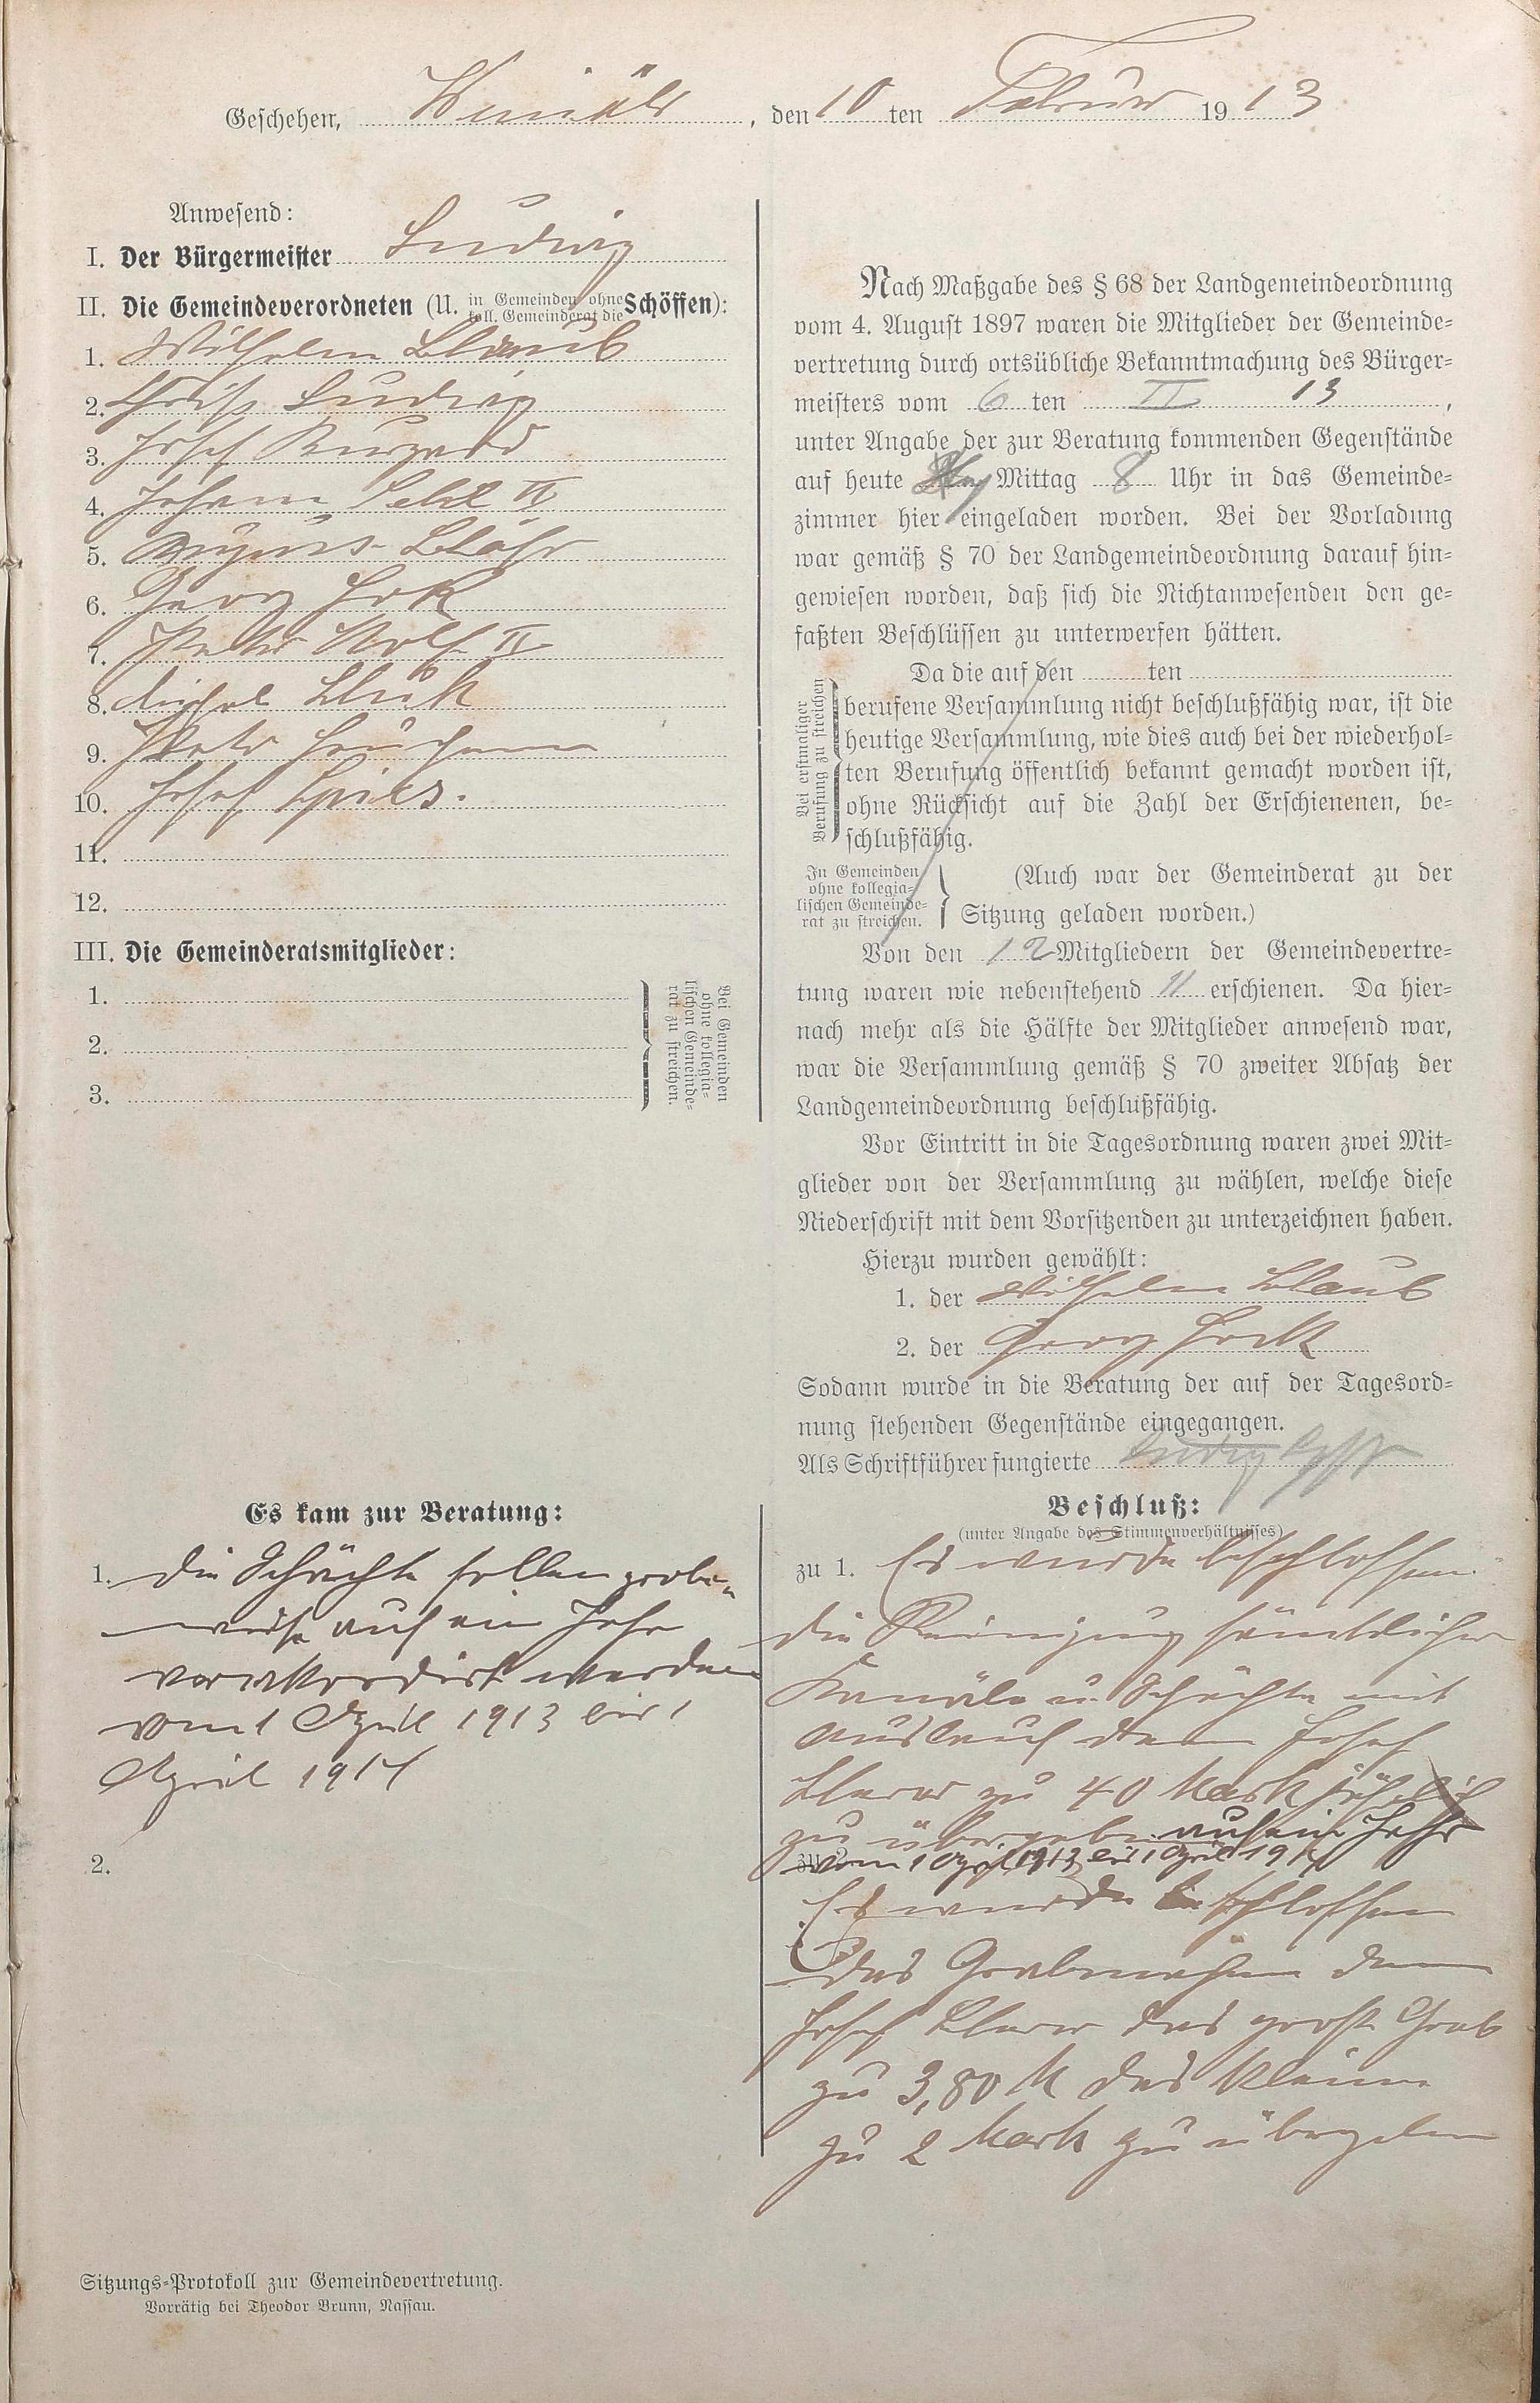 Geschehen, Winsäls, den 10 ten Februar 1913
Anwesend:
I. Der Bürgermeister Ludwig
II. Die Gemeindeverordneten (U. in Gemeinden ohne koll. Gemeinderat die Schöffen):
1. Wilhelm Blaub
2. Ludwig
3. Josef
4. Johann II
5. August
6. Georg Hock
7. Peter II
8.
9. Peter
10. Josef Spies.
11.
12.
III. Die Gemeinderatsmitglieder:
1.
2.
3.
Bei Gemeinden
ohne kollegia-
lischen Gemeinde-
rat zu streichen.
Nach Maßgabe des § 68 der Landgemeindeordnung
vom 4. August 1897 waren die Mitglieder der Gemeinde-
vertretung durch ortsübliche Bekanntmachung des Bürger-
meisters vom 6 ten II 13,
unter Angabe der zur Beratung kommenden Gegenstände
auf heute Mittag 8 Uhr in das Gemeinde-
zimmer hier eingeladen worden. Bei der Vorladung
war gemäß § 70 der Landgemeindeordnung darauf hin-
gewiesen worden, daß sich die Nichtanwesenden den ge-
faßten Beschlüssen zu unterwerfen hätten.
Bei erstmaliger
Berufung zu streichen
Da die auf den ten
berufene Versammlung nicht beschlußfähig war, ist die
heutige Versammlung, wie dies auch bei der wiederhol-
ten Berufung öffentlich bekannt gemacht worden ist,
ohne Rücksicht auf die Zahl der Erschienenen, be-
schlußfähig.
In Gemeinden
ohne kollegia-
lischen Gemeinde-
rat zu streichen.
(Auch war der Gemeinderat zu der
Sitzung geladen worden.)
Von den 12 Mitgliedern der Gemeindevertre-
tung waren wie nebenstehend 11 erschienen. Da hier-
nach mehr als die Hälfte der Mitglieder anwesend war,
war die Versammlung gemäß § 70 zweiter Absatz der
Landgemeindeordnung beschlußfähig.
Vor Eintritt in die Tagesordnung waren zwei Mit-
glieder von der Versammlung zu wählen, welche diese
Niederschrift mit dem Vorsitzenden zu unterzeichnen haben.
Hierzu wurden gewählt:
1. der Wilhelm Blaub
2. der Georg Hock
Sodann wurde in die Beratung der auf der Tagesord-
nung stehenden Gegenstände eingegangen.
Als Schriftführer fungierte Ludwig
Es kam zur Beratung:
1. Die Schächte sollen probe-
weise auf ein Jahr
verakkordirt werden
vom 1 April 1913 bis 1
April 1914
2.
Beschluß:
(unter Angabe des Stimmenverhältnisses)
zu 1. Es wurde beschlossen
die Reinigung sämtlicher
Kanäle u. Schächte mit
Auslauf dem Josef
zu 40 Mark jährlich
zu übergeben auf ein Jahr
vom 1 April 1913 bis 1 April 1914
zu 2.
Es wurde beschlossen
das Grabmachen dem
Josef das große Grab
zu 3,80 M das kleine
zu 2 Mark zu übergeben
Sitzungs-Protokoll zur Gemeindevertretung.
Vorrätig bei Theodor Brunn, Nassau.